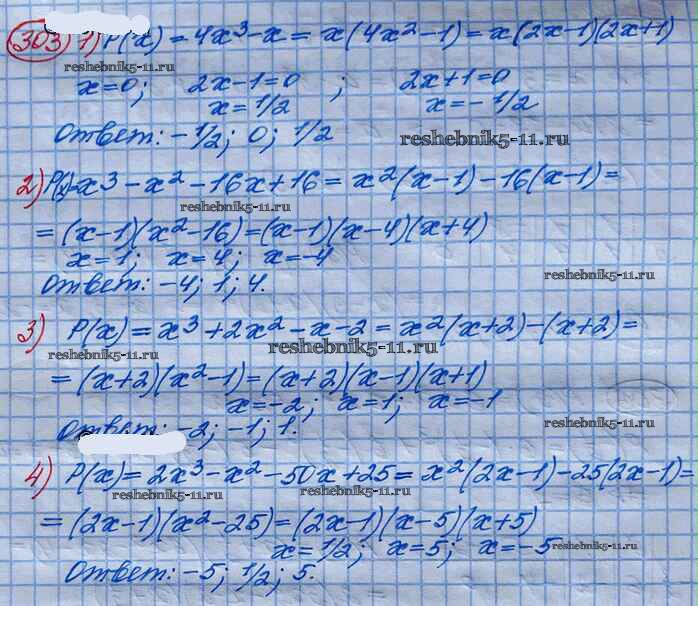 303) 1) P(x) = 4x³ - x = x(4x² - 1) = x(2x-1)(2x+1)
reshebnik5-11.ru
x=0; 2x-1=0 ; 2x+1=0
x=1/2 x=-1/2
Ответ: -1/2; 0; 1/2
reshebnik5-11.ru
2) P(x)=x³ - x² - 16x + 16 = x²(x-1) - 16(x-1) =
reshebnik5-11.ru
= (x-1)(x²-16) = (x-1)(x-4)(x+4)
x=1; x=4; x=-4
reshebnik5-11.ru
Ответ: -4; 1; 4.
3) P(x) = x³ + 2x² - x - 2 = x²(x+2) - (x+2) =
reshebnik5-11.ru reshebnik5-11.ru
= (x+2)(x²-1) = (x+2)(x-1)(x+1)
x=-2; x=1; x=-1
reshebnik5-11.ru
Ответ: -2; -1; 1.
4) P(x) = 2x³ - x² - 50x + 25 = x²(2x-1) - 25(2x-1) =
reshebnik5-11.ru reshebnik5-11.ru
= (2x-1)(x²-25) = (2x-1)(x-5)(x+5)
x=1/2; x=5; x=-5
reshebnik5-11.ru
Ответ: -5; 1/2; 5.